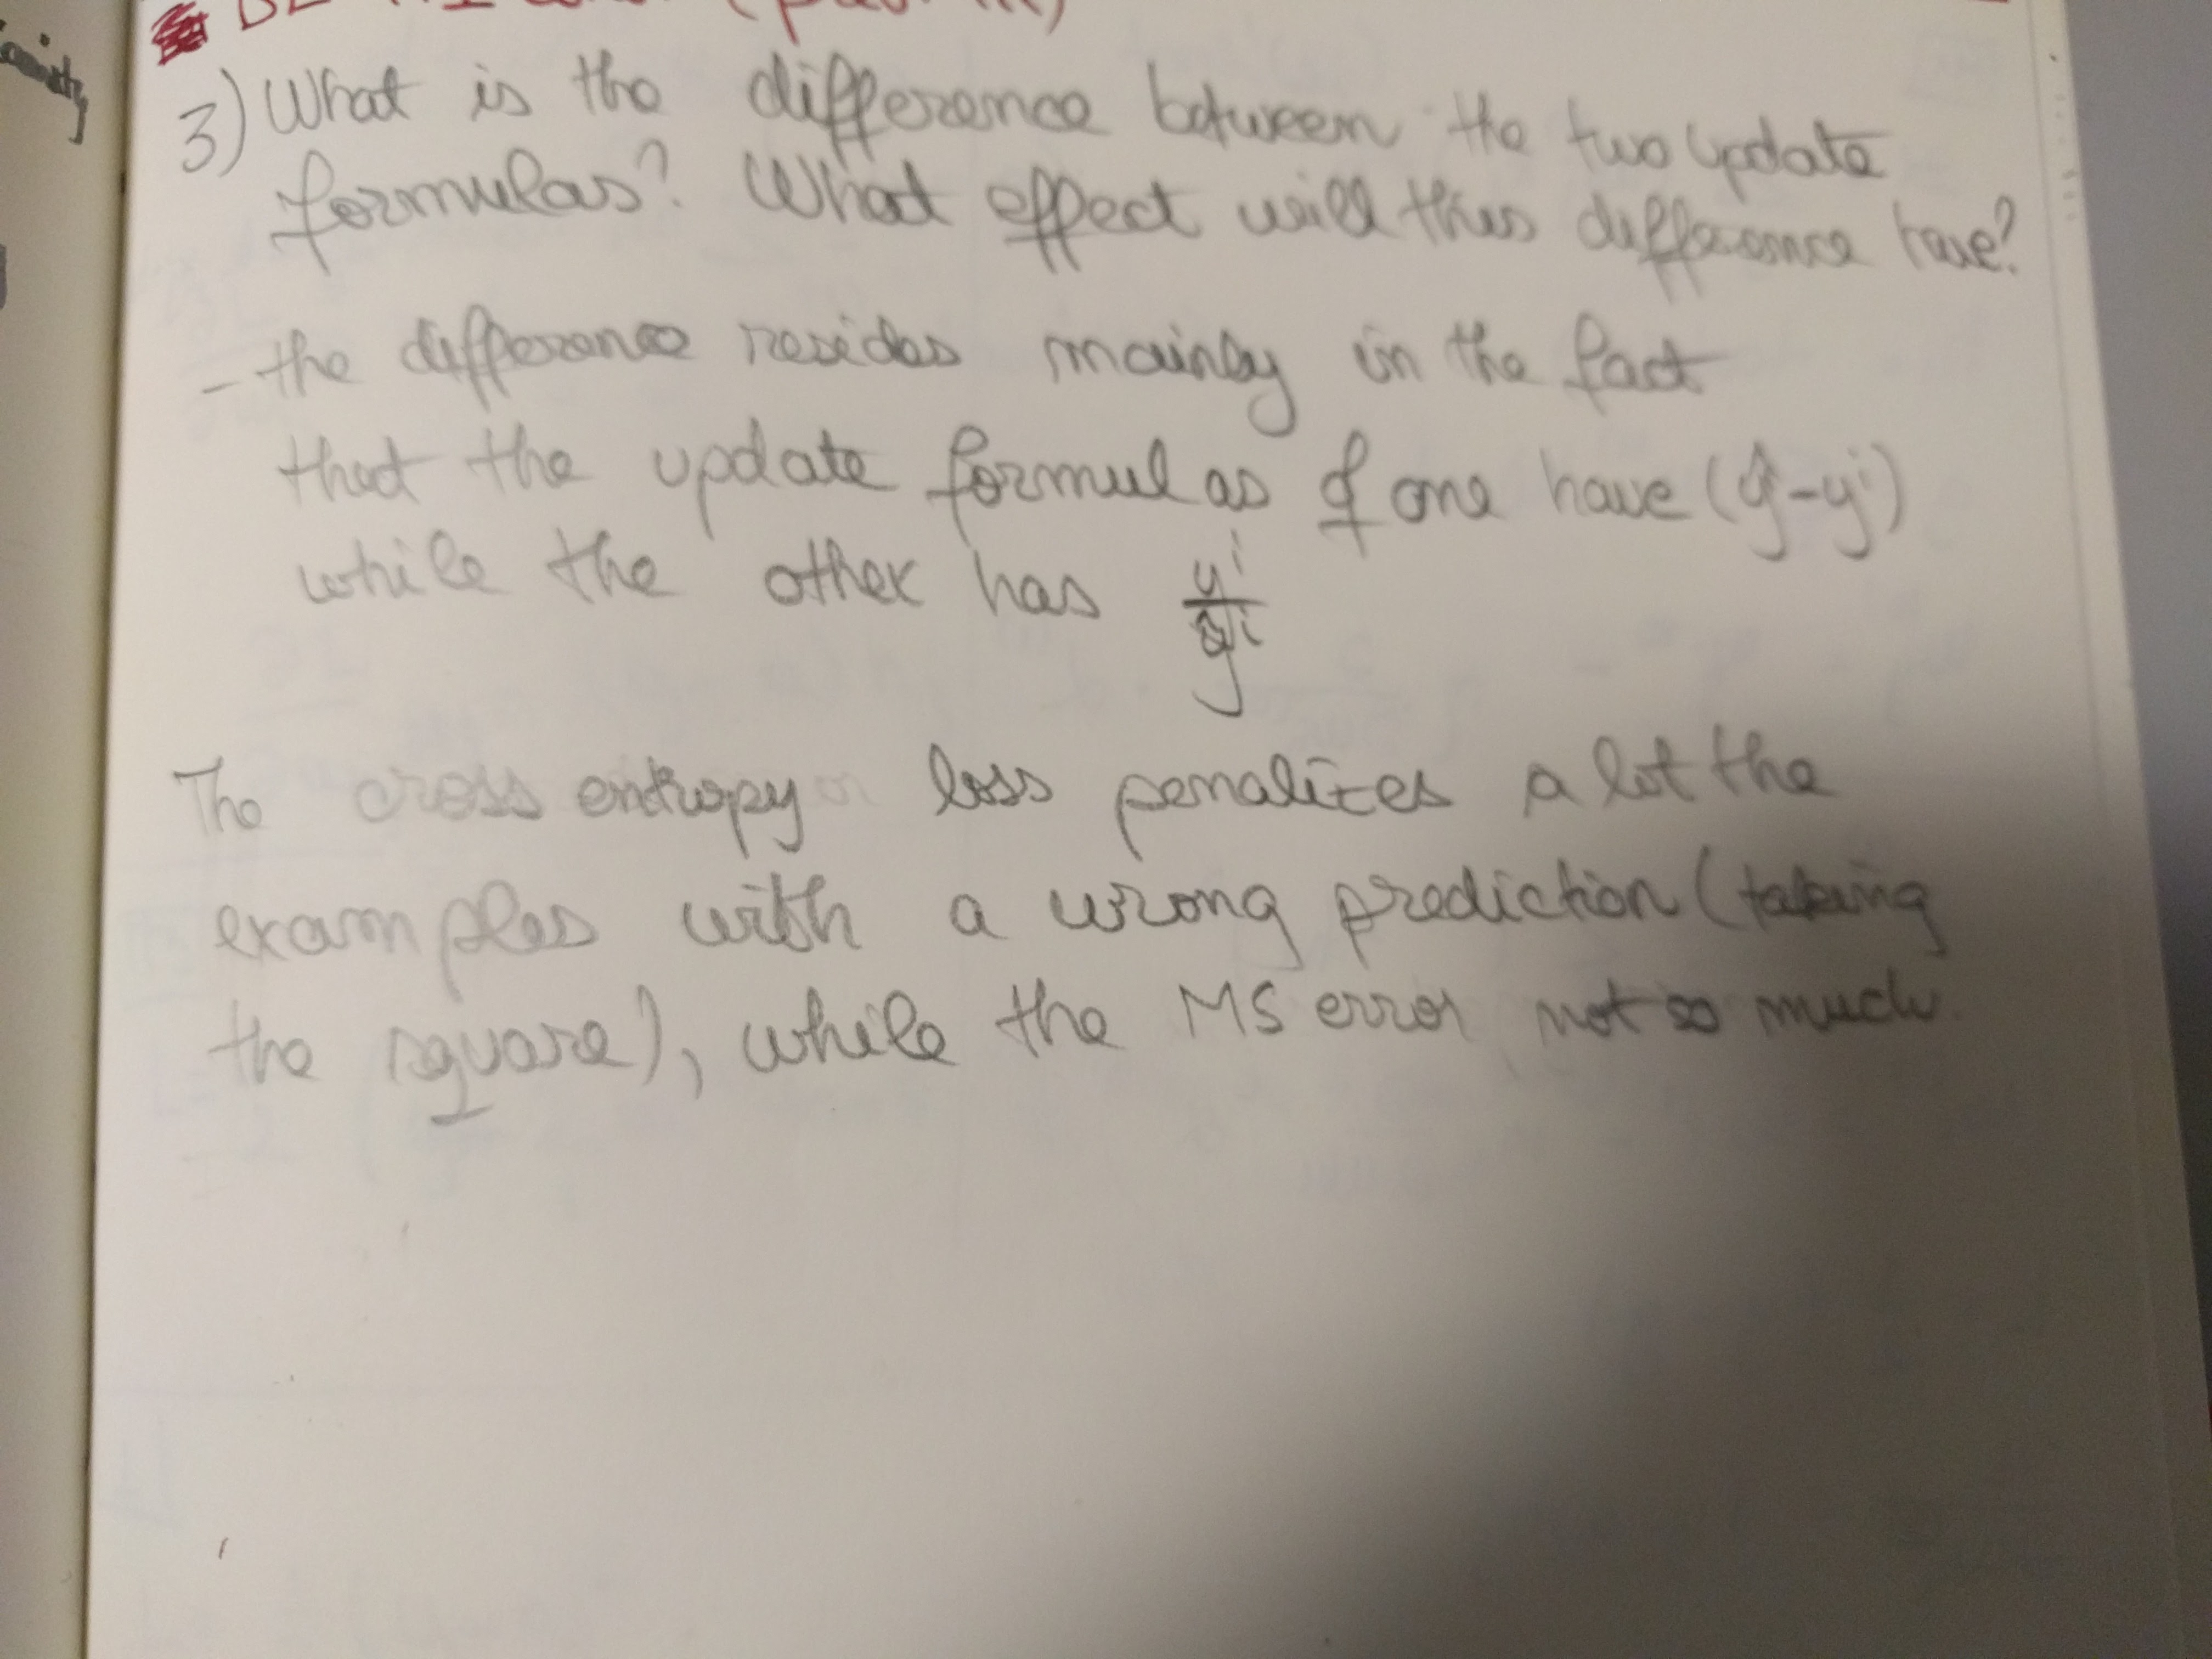 3) What is the difference between the two update
formulas? What effect will this difference have?
- the difference resides mainly in the fact
that the update formulas of one have (ŷⁱ-yⁱ)
while the other has yⁱ/ŷⁱ
The cross entropy loss penalizes a lot the
examples with a wrong prediction (taking
the square), while the MS error not so much.